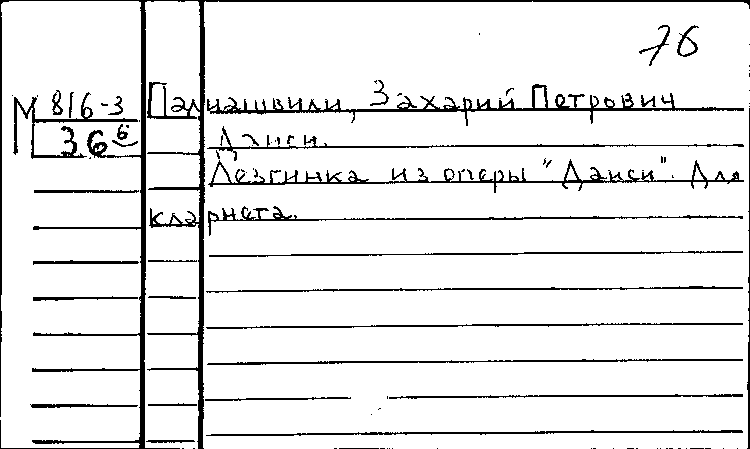 76
М 816-3
36 6
Палиашвили, Захарий Петрович
Даиси.
Лезгинка из оперы "Даиси". Для
кларнета.